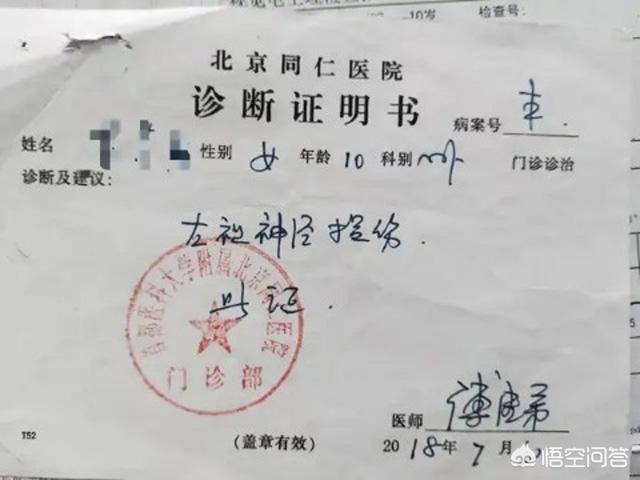 10岁 检查号:
北京同仁医院
诊断证明书
病案号
姓名 性别 女 年龄 10 科别 门诊诊治
诊断及建议:
左视神经损伤.
此证
首都医科大学附属北京同仁医院
门诊部
医师
(盖章有效)
2018年7月
T52
悟空问答